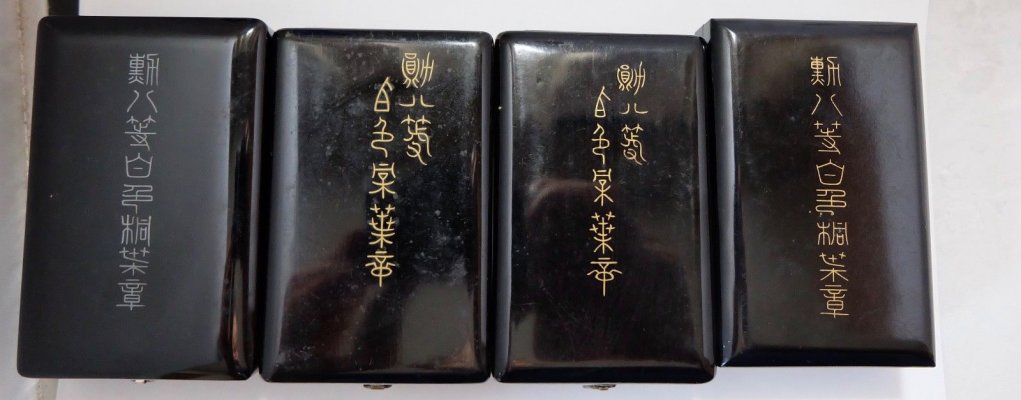 勳八等白色桐葉章
勛八等
白色桐葉章
勛八等
白色桐葉章
勳八等白色桐葉章